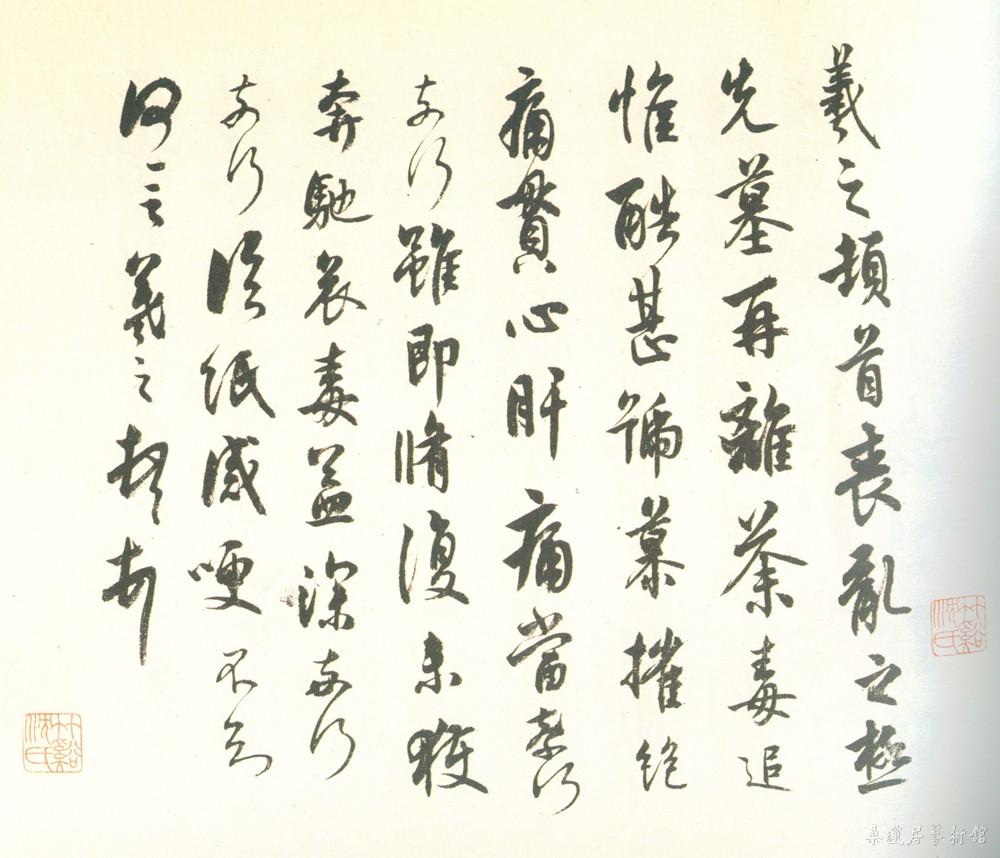 羲之頓首喪亂之極
先墓再離荼毒追
惟酷甚號慕摧絕
痛貫心肝痛當柰何
奈何雖即脩復未獲
奔馳哀毒益深奈何
奈何臨紙感哽不知
何言羲之頓首
頓首
竹谿沈氏
竹谿沈氏